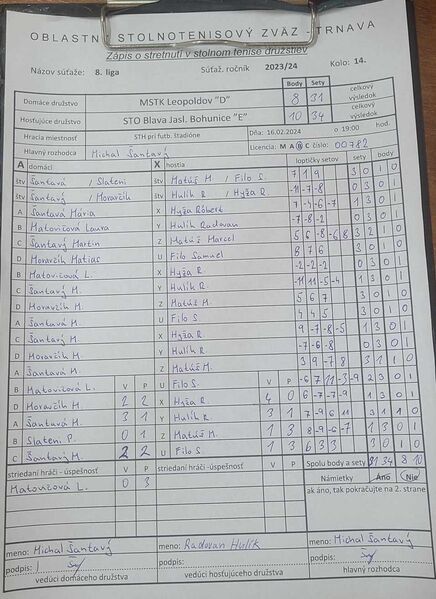 OBLASTNÝ STOLNOTENISOVÝ ZVÄZ - TRNAVA
Zápis o stretnutí v stolnom tenise družstiev
Názov súťaže: 8. liga Súťaž. ročník 2023/24 Kolo: 14.
Body Sety
Domáce družstvo MSTK Leopoldov "D" 8 31 celkový výsledok
Hosťujúce družstvo STO Blava Jasl. Bohunice "E" 10 34 celkový výsledok
Hracia miestnosť STH pri futb. štadióne Dňa: 16.02.2024 o 19:00 hod.
Hlavný rozhodca Michal Šantavý Licencia: M A B C číslo: 00782
A domáci X hostia loptičky setov sety body
štv Šantavá / Slateni štv Matúš M / Filo S. 7 1 9 3 0 1 0
štv Šantavý / Moravčík štv Hulík R / Hyža R. -11 -7 -8 0 3 0 1
A Šantavá Mária X Hyža Róbert 1 3 0 1
B Matovičová Laura Y Hulík Radovan -7 -8 -2 0 3 0 1
C Šantavý Martin Z Matúš Marcel 5 6 -8 -6 8 3 2 1 0
D Moravčík Matias U Filo Samuel 8 7 6 3 0 1 0
B Matovičová L. X Hyža R. -2 -2 -2 0 3 0 1
C Šantavý M. Y Hulík R. -11 11 -5 -4 1 3 0 1
D Moravčík M. Z Matúš M. 5 6 7 3 0 1 0
A Šantavá M. U Filo S. 4 4 5 3 0 1 0
C Šantavý M. X Hyža R. 9 -7 -8 -5 1 3 0 1
D Moravčík M. Y Hulík R. -7 -6 -8 0 3 0 1
A Šantavá M. Z Matúš M. 3 9 -7 8 3 1 1 0
B Matovičová L. V P U Filo S. V P -6 7 11 -3 -9 2 3 0 1
D Moravčík M. 2 2 X Hyža R. 4 0 6 -7 -7 -9 1 3 0 1
A Šantavá M. 3 1 Y Hulík R. 3 1 7 -9 6 11 3 1 1 0
B Slateni P. 0 1 Z Matúš M. 1 3 8 -9 -6 -7 1 3 0 1
C Šantavý M. 2 2 U Filo S. 1 3 6 3 3 3 0 1 0
striedaní hráči - úspešnosť V P striedaní hráči - úspešnosť V P Spolu body a sety 31 34 8 10
Matovičová L. 0 3 Námietky Áno Nie
ak áno, tak pokračujte na 2. strane
meno: Michal Šantavý meno: Radovan Hulík meno: Michal Šantavý
podpis: podpis: podpis:
vedúci domáceho družstva vedúci hosťujúceho družstva hlavný rozhodca